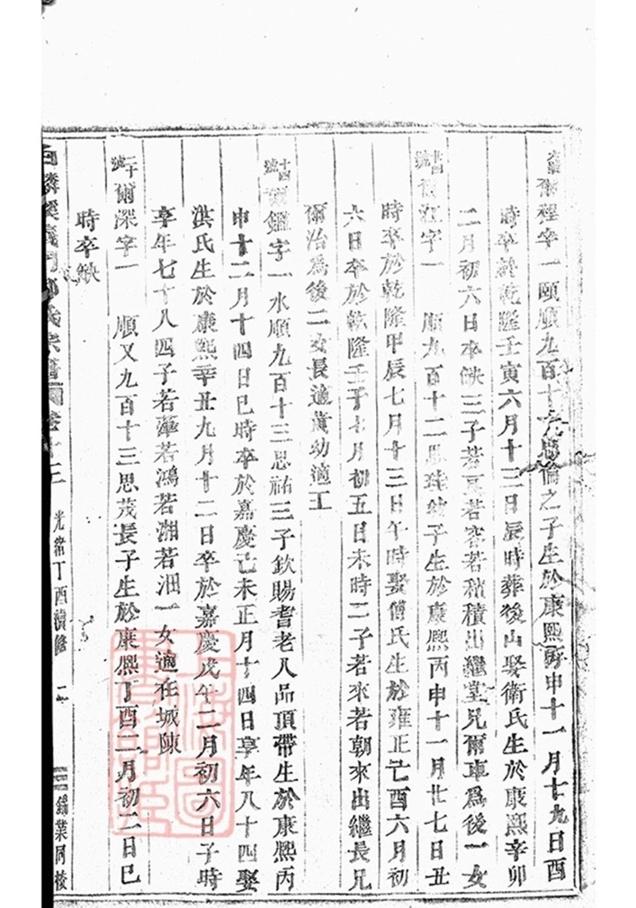 爾程字一頤順九百十思倫之子生於康熙丙申十一月十九日酉
時卒於乾隆壬寅六月十三日辰時葬後山娶衛氏生於康熙辛卯
二月初六日卒缺三子若可若容若積積出繼堂兄爾車為後一女
字一 順九百十二思幼子生於康熙丙申十一月廿七日丑
時卒於乾隆甲辰七月十三日午時娶傅氏生於雍正己酉六月初
六日卒於乾隆壬子七月初五日未時二子若來若朝來出繼長兄
爾治為後二女長適黃幼適王
十四號 鑑字一水順九百十三思祐三子欽賜耆老八品頂帶生於康熙丙
申十二月十四日巳時卒於嘉慶己未正月十四日享年八十四娶
洪氏生於康熙辛丑九月十二日卒於嘉慶戊午二月初六日子時
享年七十八四子若華若鴻若湘若泗一女適在城陳
二十號爾深字一 順又九百十三思茂長子生於康熙丁酉二月初二日巳
時卒缺
麟溪義門鄭氏宗譜 光緒丁酉續修 二 錫業同校